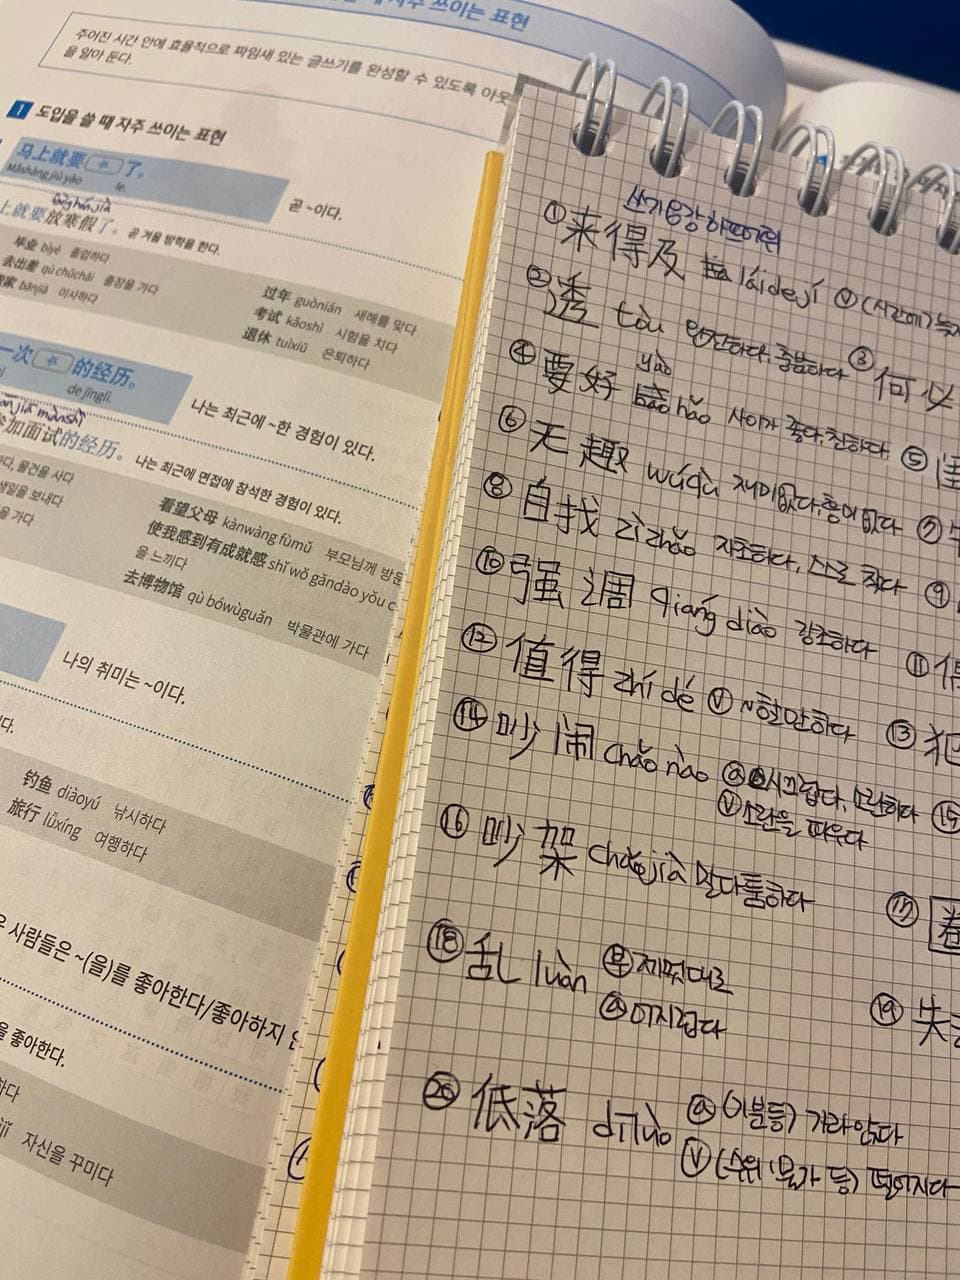 때 자주 쓰이는 표현
주어진 시간 안에 효율적으로 짜임새 있는 글쓰기를 완성할 수 있도록 아웃
을 알아 둔다.
1 도입을 쓸 때 자주 쓰이는 표현
马上就要 了。
Mǎshàng jiù yào le.
곧 ~이다.
上就要放寒假了。 곧 겨울 방학을 한다.
毕业 bìyè 졸업하다
去出差 qù chūchāi 출장을 가다
bānjiā 이사하다
过年 guònián 새해를 맞다
考试 kǎoshì 시험을 치다
退休 tuìxiū 은퇴하다
一次 的经历。
de jīnglì.
나는 최근에 ~한 경험이 있다.
miànshì
加面试的经历。 나는 최근에 면접에 참석한 경험이 있다.
물건을 사다
생일을 보내다
가다
看望父母 kànwàng fùmǔ 부모님께 방문
使我感到有成就感 shǐ wǒ gǎndào yǒu c
을 느끼다
去博物馆 qù bówùguǎn 박물관에 가다
나의 취미는 ~이다.
钓鱼 diàoyú 낚시하다
旅行 lǚxíng 여행하다
사람들은 ~(을)를 좋아한다/좋아하지
좋아한다.
자신을 꾸미다
① 来得及 láidejí ⓥ (시간에) 늦지
② 透 tòu 완전하다. 충분하다 ③ 何必
④ 要好 yàohǎo 사이가 좋다. 친하다 ⑤
⑥ 无趣 wúqù 재미없다, 흥미없다 ⑦
⑧ 自找 zìzhǎo 자초하다, 스스로 찾다 ⑨
⑩ 强调 qiángdiào 강조하다 ⑪
⑫ 值得 zhídé ⓥ ~할만하다 ⑬ 犯
⑭ 吵闹 chǎonào ⓐ 시끄럽다, 소란하다 ⑮
ⓥ 소란을 피우다
⑯ 吵架 chǎojià 말다툼하다 ⑰ 卷
⑱ 乱 luàn 부 제멋대로
ⓐ 어지럽다 ⑲ 失
⑳ 低落 dīluò ⓐ (기분 등) 가라앉다
ⓥ (수위·물가 등) 떨어지다